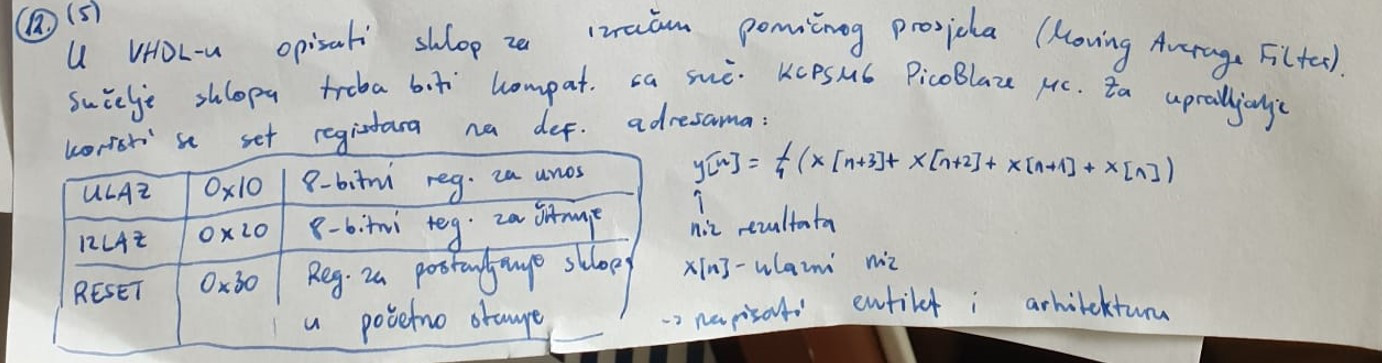 12. (5)
U VHDL-u opisati sklop za izračun pomičnog prosjeka (Moving Average Filter).
Sučelje sklopa treba biti kompat. sa suč. KCPSM6 PicoBlaze μC. Za upravljanje
koristi se set registara na def. adresama:
ULAZ 0x10 8-bitni reg. za unos
IZLAZ 0x20 8-bitni reg. za čitanje
RESET 0x30 Reg. za postavljanje sklopa
u početno stanje
y[n] = 1/4 (x[n+3] + x[n+2] + x[n+1] + x[n])
↑
niz rezultata
x[n] - ulazni niz
→ napisati entitet i arhitekturu